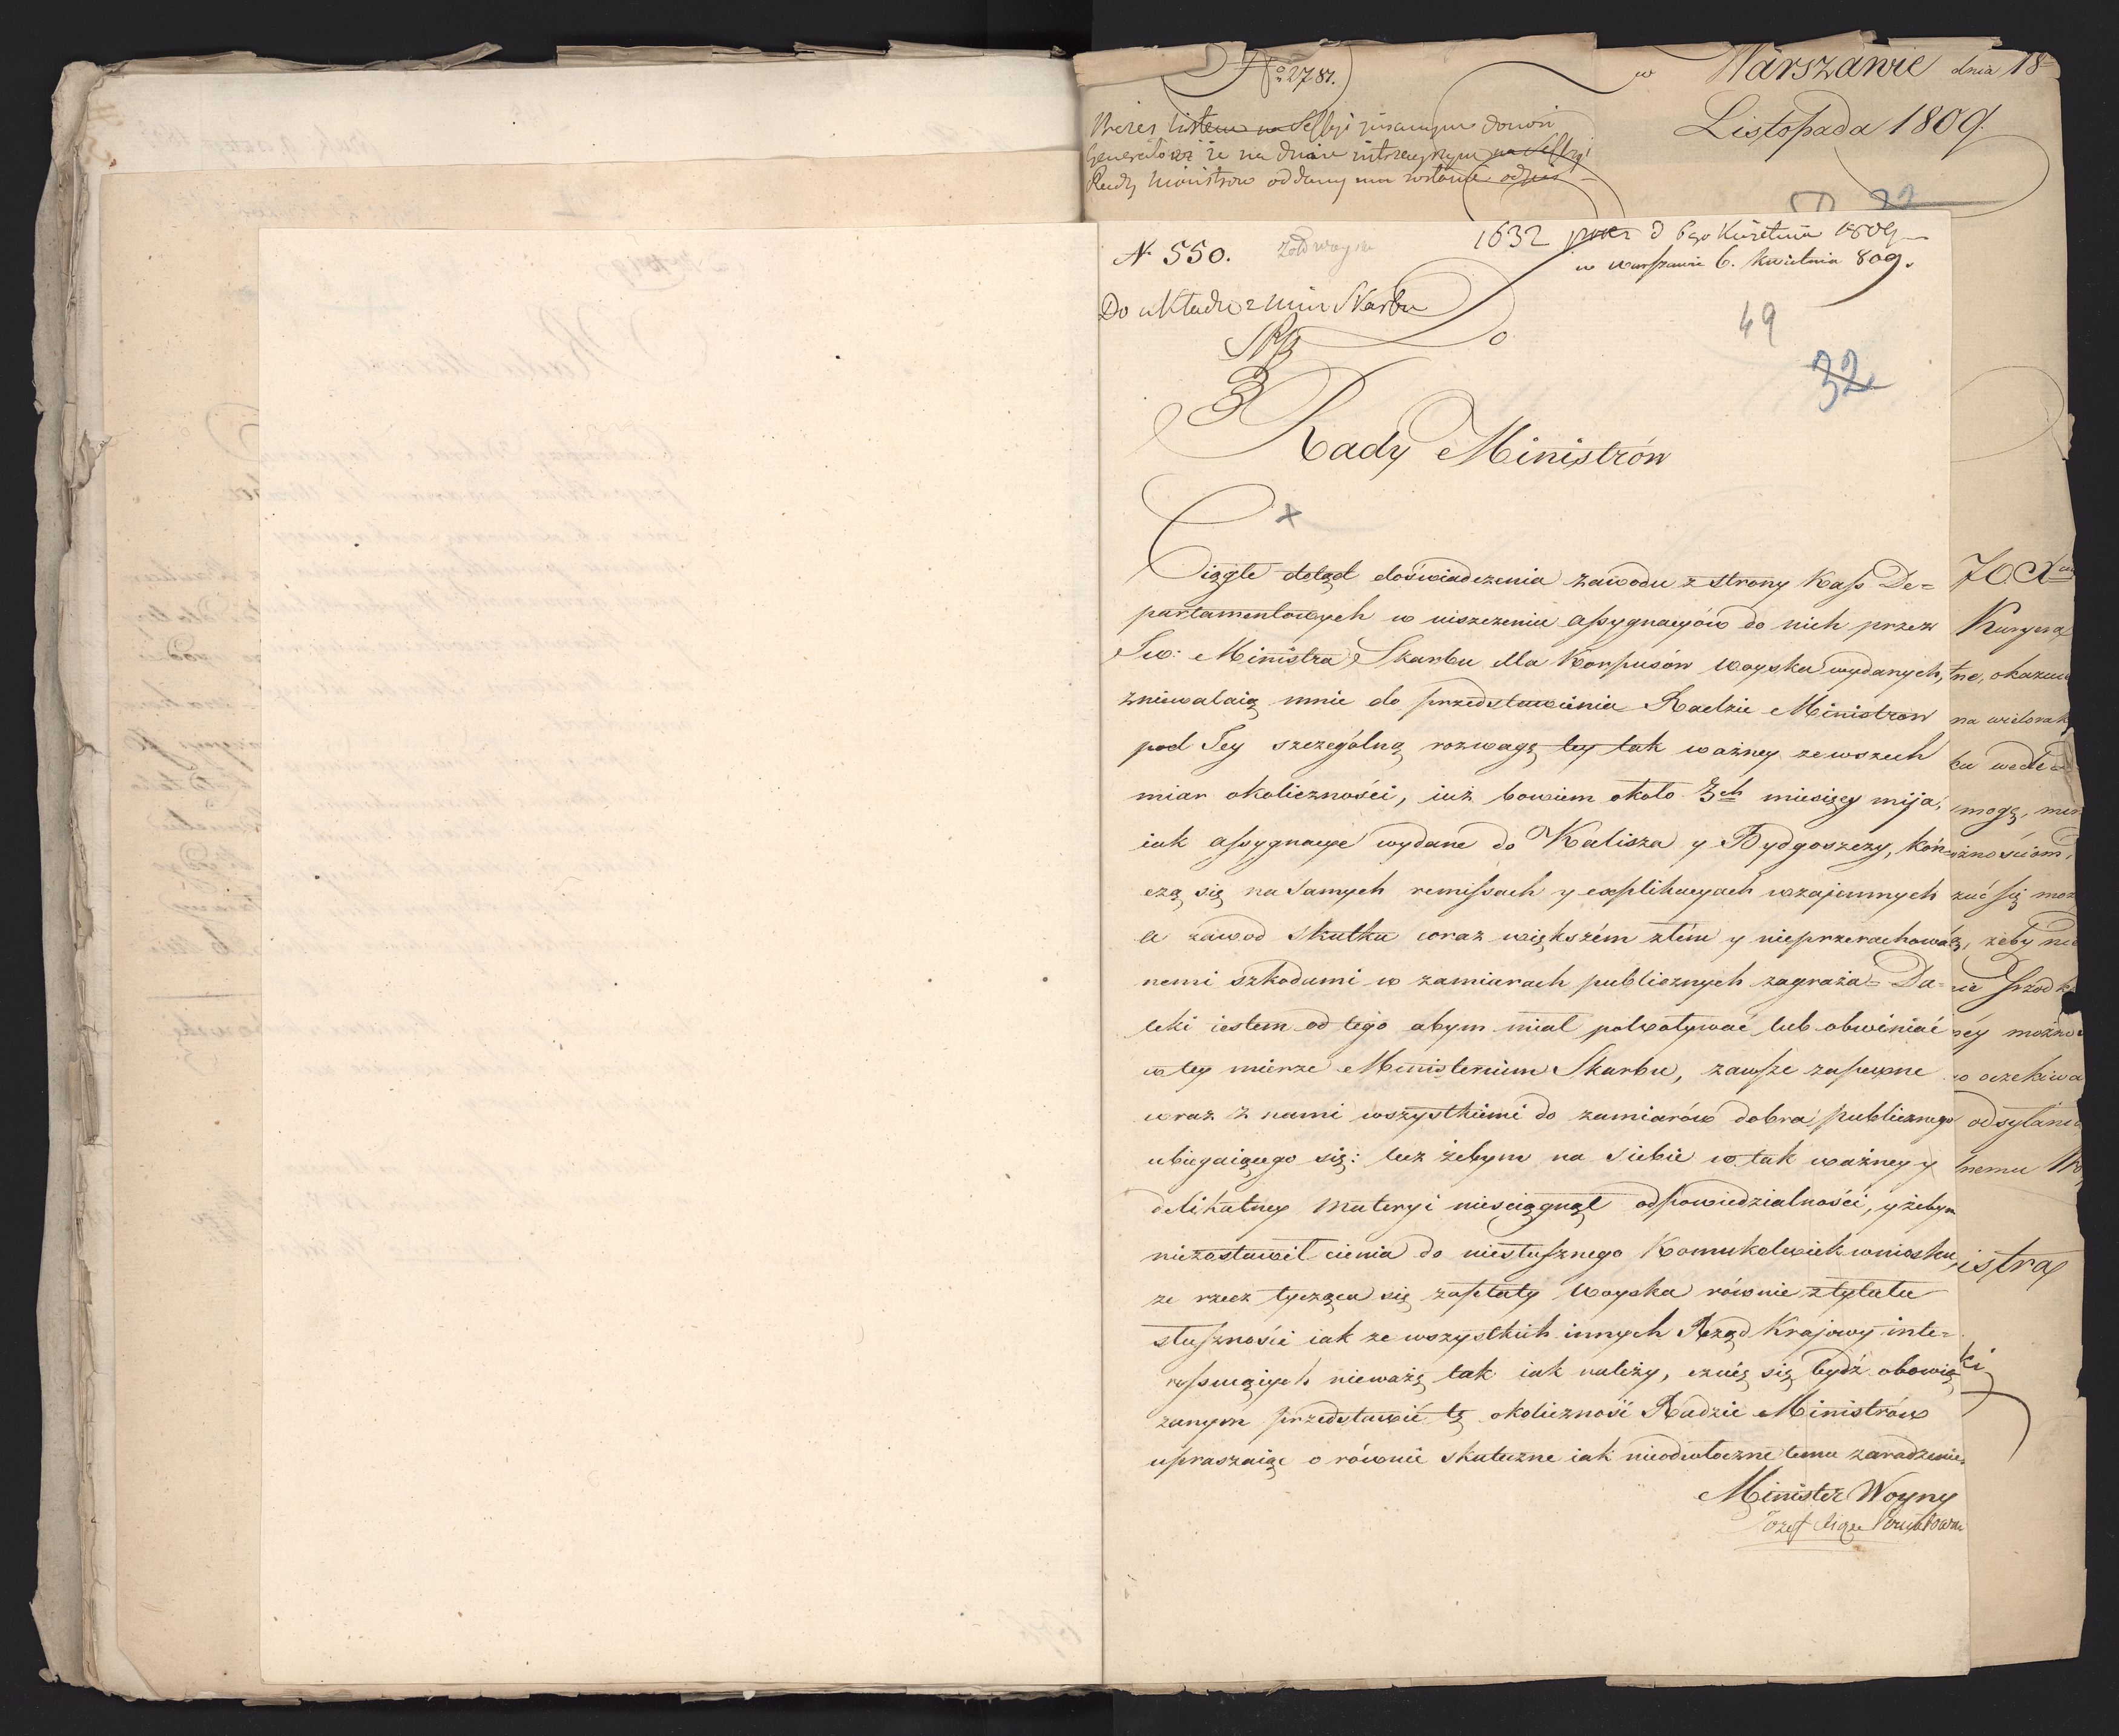 No 2781.
w Warszawie dnia 18
Listopada 1809.
Prezes listem na Sessyi pisanym donosi
Generałowi że na dniu jutrzeyszym na Sessyi
Rady Ministrow oddany mu zostanie odpis
N. 550.
1632 d 6go Kwietnia 1809
w Warszawie 6. Kwietnia 809.
Do układu z Min Skarbu
Do
49
32
Rady Ministrów
Ciągłe dotąd doświadczenia zawodu z strony Kass De=
partamentowych w uiszczeniu assygnacyów do nich przez
JW: Ministra Skarbu dla Korpusów woyska wydanych,
zniewalaią mnie do przedstawienia Radzie Ministrow
pod Jey szczególną rozwagę tey tak ważney ze wszech
miar okoliczności, iuż bowiem około 3ch miesięcy mija,
iak assygnacye wydane do Kalisza y Bydgoszczy, koń=
czą się na samych remissach y explikacyach wzajemnych
a zawod skutku coraz większém złém y nieprzerachowa=
nemi szkodami w zamiarach publicznych zagraża= Da=
leki iestem od tego abym miał potwotywać lub obwiniać
w tey mierze Ministerium Skarbu, zawsze zapewne
wraz z nami wszystkiemi do zamiarów dobra publicznego
ubiegaiącego się: lecz żebym na siebie w tak ważney y
delikatney materyi nieściągnął odpowiedzialności, y żebym
niezostawił cienia do niesłusznego komukolwiek wniosku,
że rzecz tycząca się zapłaty woyska równie z tytułu
słuszności iak ze wszystkich innych Rząd Krajowy inte=
ressuiących nieważę tak iak należy, czuię się bydź obowią
zanym przedstawić tę okoliczność Radzie Ministrów
upraszaiąc o równie skuteczne iak nieodwłoczne temu zaradzenie.
Minister Woyny
Józef Xiąże Poniatowski
70
Kuryera
tne,
na
mogę,
żeby
możno
oczekiwa
odsyłania
nemu
istra
ki